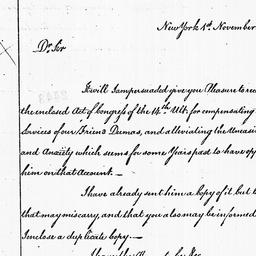 New York 1st. November
Dr. Sir
It will I am persuaded give you Pleasure to rec
the enclosed Act of Congress of the 14th. Ult. for compensating
Services of our Friend Dumas, and alleviating the Uneasin
and Anxiety which seems for some Years past to have opp
him on that Account.—
I have already sent him a Copy of it. but t
that may miscarry, and that you also may be informed
I enclose a duplicate copy.—